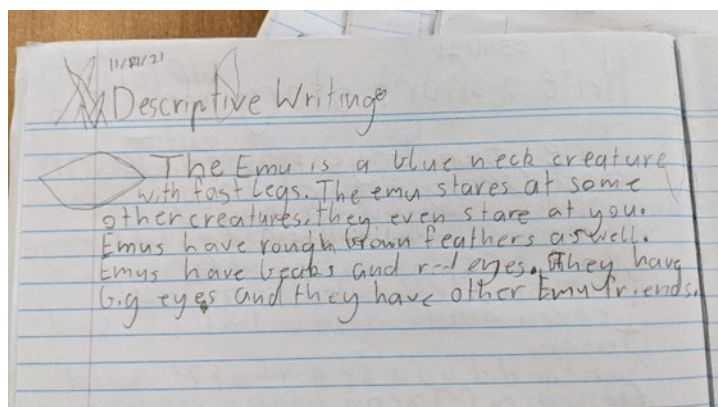 11/01/21
Descriptive Writing
The Emu is a blue neck creature
with fast legs. The emu stares at some
other creatures, they even stare at you.
Emus have rough brown feathers aswell.
Emus have beaks and red eyes. They have
big eyes and they have other Emu friends.